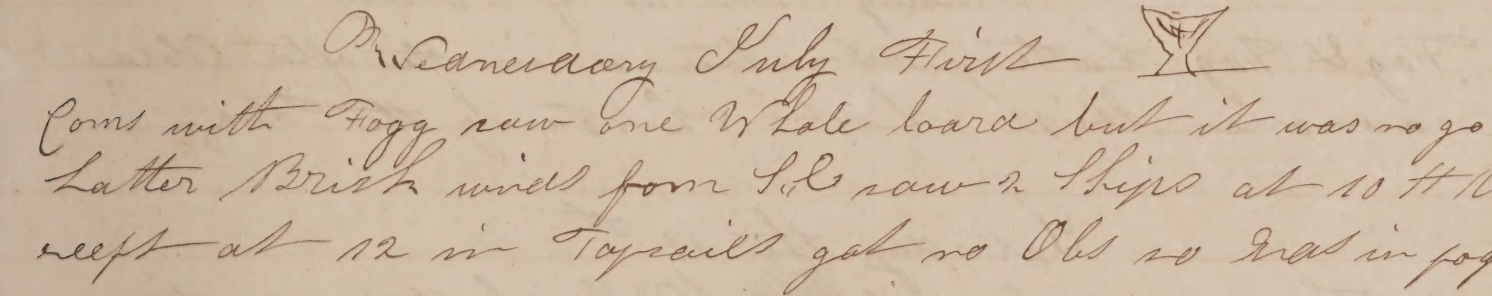 Wednesdaery July First
Coms with Fogg saw one Whale loard but it was no go
Latter Brisk winds from S,,E saw 2 Ships at 10 H
reeft at 12 in Topsails got no Obs so Ends in fog